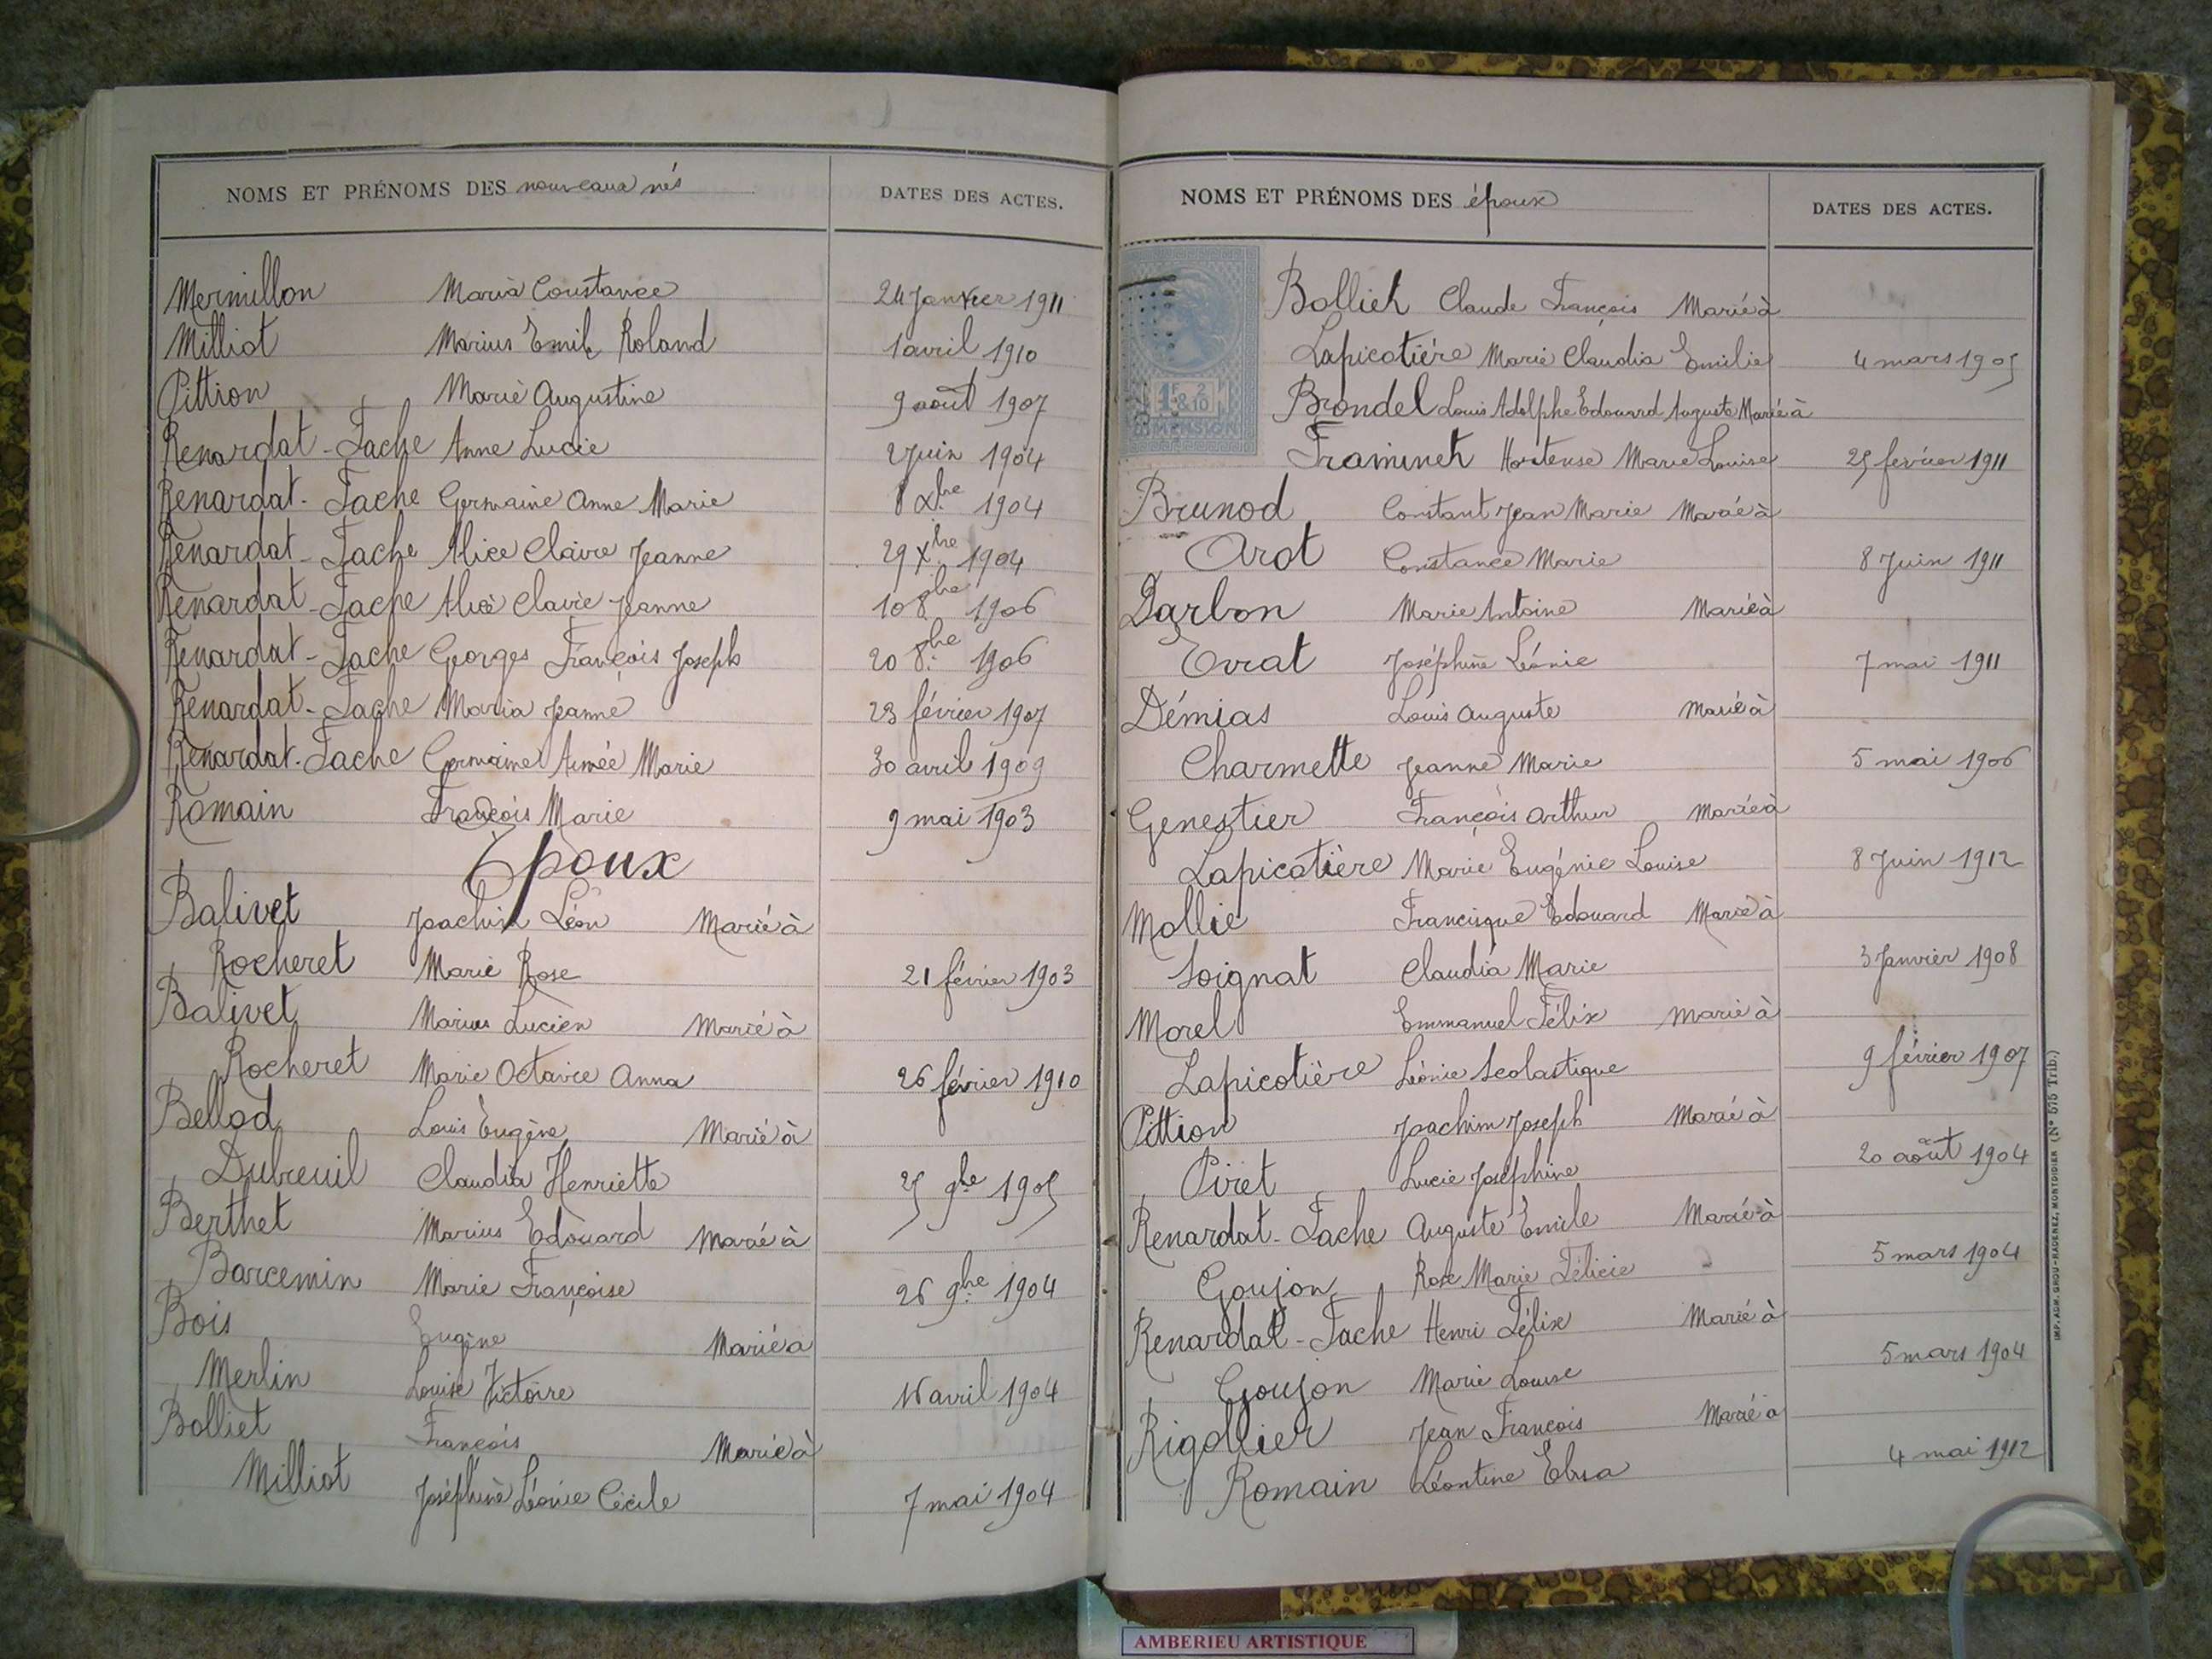 NOMS ET PRÉNOMS DES nouveaux nés DATES DES ACTES.
Mermillon Maria Constance 24 Janvier 1911
Milliot Marius Emile Roland 1 avril 1910
Pittion Marie Augustine 9 août 1907
Renardat-Fache Anne Lucie 2 Juin 1904
Renardat-Fache Germaine Anne Marie 8 Xbre 1904
Renardat-Fache Alice Claire Jeanne 29 Xbre 1904
Renardat-Fache Claire Jeanne 10 8bre 1906
Renardat-Fache Georges François Joseph 20 8bre 1906
Renardat-Fache Maria Jeanne 23 février 1907
Renardat-Fache Germaine Aimée Marie 30 avril 1909
Romain François Marie 9 mai 1903
Epoux
Balivet Joachim Léon Marié à
Rocheret Marie Rose 21 février 1903
Balivet Marius Lucien Marié à
Rocheret Marie Octavie Anna 26 février 1910
Bellod Louis Eugène Marié à
Dubreuil Claudia Henriette 25 9bre 1905
Berthet Marius Edouard Marié à
Barcemin Marie Françoise 26 9bre 1904
Bois Eugène Marié a
Merlin Louise Victoire 16 avril 1904
Bolliet François Marié à
Milliot Joséphine Léonie Cécile 7 mai 1904
NOMS ET PRÉNOMS DES époux DATES DES ACTES.
Bolliet Claude François Marié à
Lapicotière Marie Claudia Emilie 4 mars 1905
Brondel Louis Adolphe Edouard Auguste Marié à
Framinet Hortense Marie Louise 25 février 1911
Brunod Constant Jean Marie Marié à
Arot Constance Marie 8 Juin 1911
Darbon Marie Antoine Marié à
Evrat Joséphine Léonie 7 mai 1911
Démias Louis Auguste Marié à
Charmette Jeanne Marie 5 mai 1906
Genestier François Arthur Marié à
Lapicotière Marie Eugénie Louise 8 Juin 1912
Mollie Francisque Edouard Marié à
Soignat Claudia Marie 3 Janvier 1908
Morel Emmanuel Félix Marié à
Lapicotière Léonie Scolastique 9 février 1907
Pittion Joachim Joseph Marié à
Piret Lucie Joséphine 20 août 1904
Renardat-Fache Auguste Emile Marié à
Goujon Rose Marie Félicie 5 mars 1904
Renardat-Fache Henri Félix Marié à
Goujon Marie Louise 5 mars 1904
Rigollier Jean François Marié a
Romain Léontine 4 mai 1912
1F 2
& 10
DIMENSION
IMP. ADM. GROU-RADENEZ, MONTDIDIER (N° 575 Trib.)
AMBERIEU ARTISTIQUE